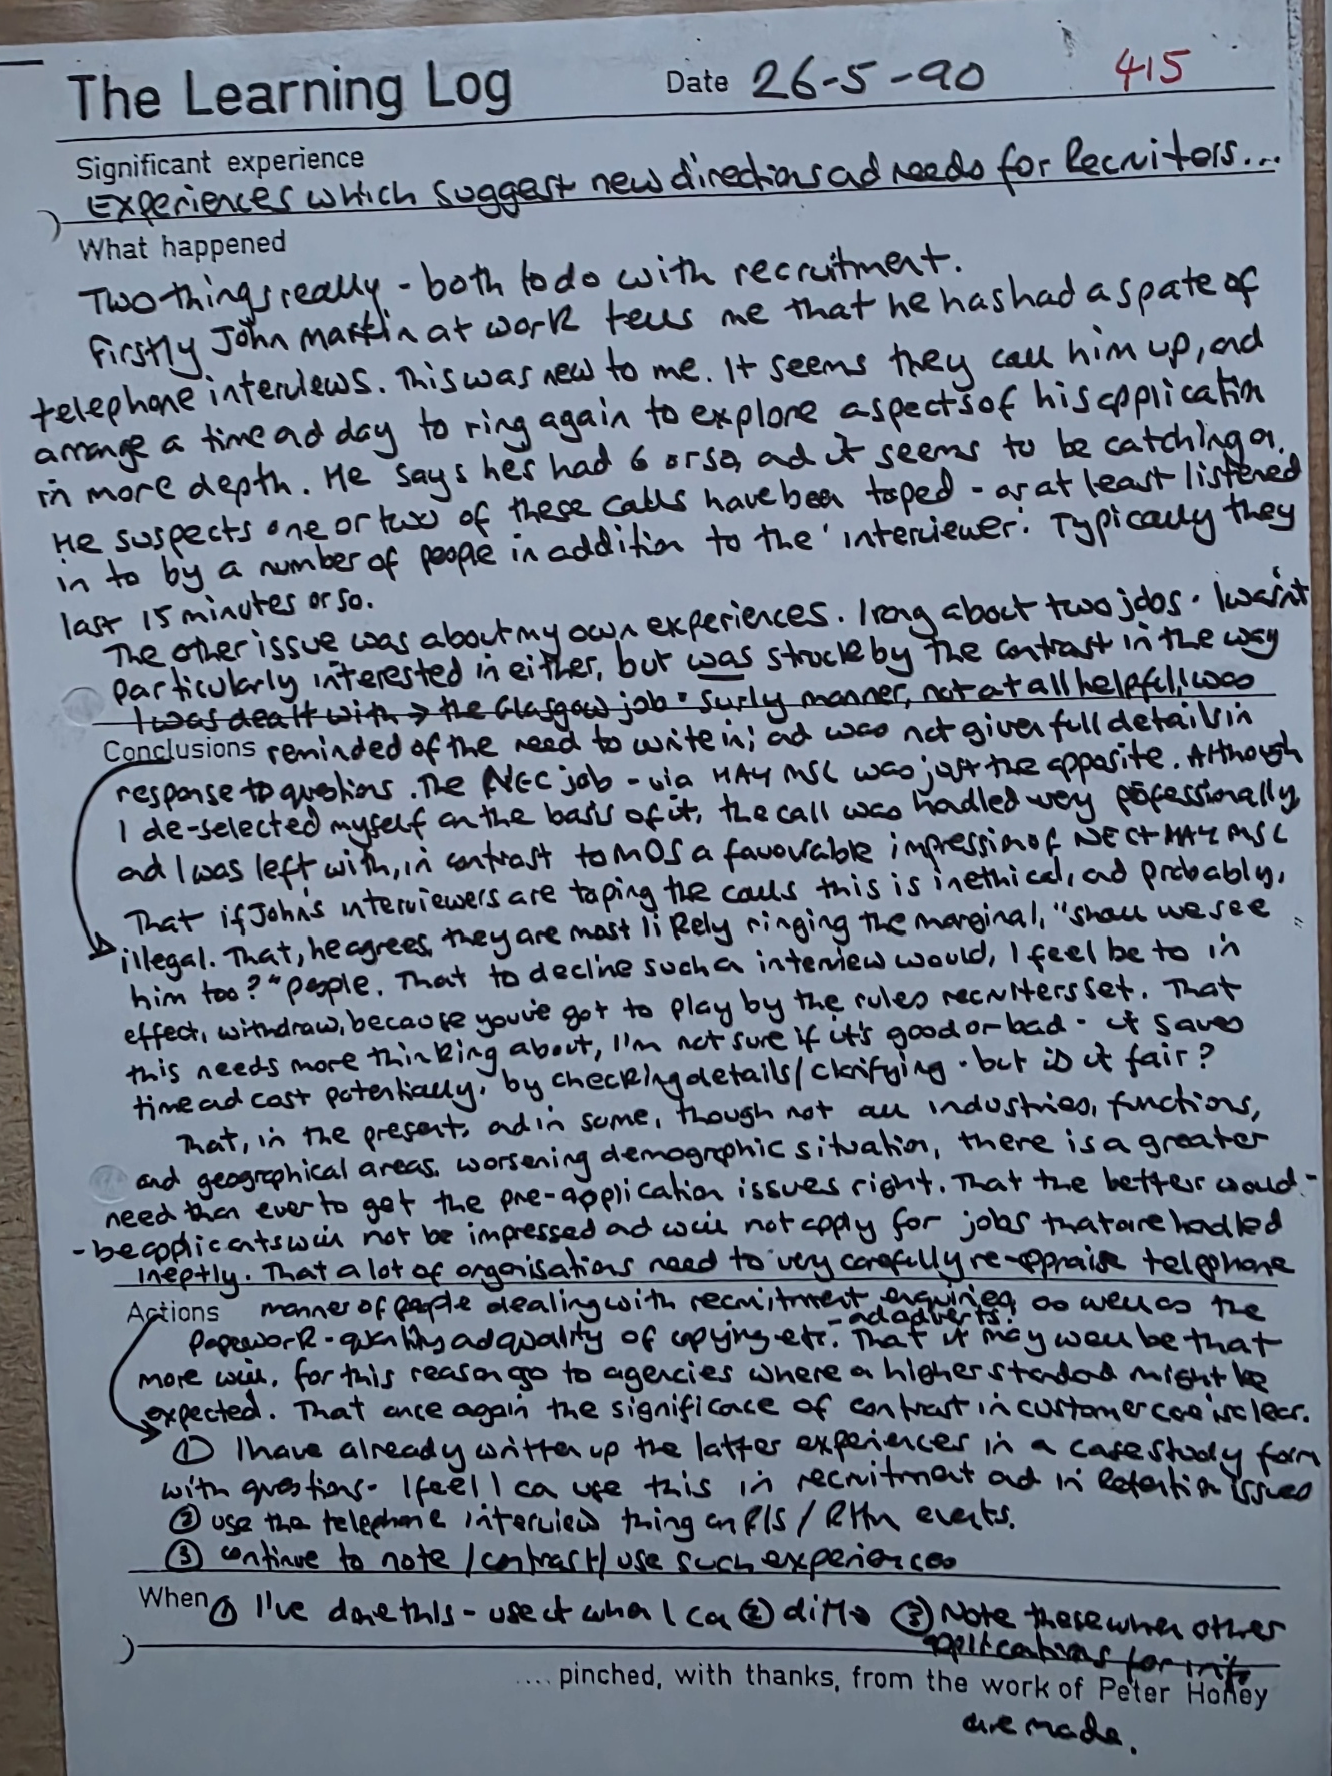 The Learning Log Date 26-5-90 415
Significant experience
Experiences which suggest new directions ad needs for Recruiters...
What happened
Two things really - both to do with recruitment.
Firstly John Martin at work tells me that he has had a spate of
telephone interviews. This was new to me. It seems they call him up, and
arrange a time ad day to ring again to explore aspects of his application
in more depth. He says hes had 6 or so, ad it seems to be catching on.
He suspects one or two of these calls have been taped - or at least listened
in to by a number of people in addition to the 'interviewer'. Typically they
last 15 minutes or so.
The other issue was about my own experiences. I rang about two jobs. I wasn't
particularly interested in either, but was struck by the contrast in the way
I was dealt with → the Glasgow job - surly manner, not at all helpful, I was
Conclusions reminded of the need to write in; ad was not given full details in
response to questions. The NEC job - via HAY MSL was just the opposite. Although
I de-selected myself on the basis of it, the call was handled very professionally,
ad I was left with, in contrast to a favourable impression of NEC + HAY MSL
That if John's interviewers are taping the calls this is inethical, ad probably,
illegal. That, he agrees, they are most likely ringing the marginal, "shall we see
him too?" people. That to decline such a interview would, I feel be to in
effect, withdraw, because you've got to play by the rules recruiters set. That
this needs more thinking about, I'm not sure if it's good or bad - it saves
time ad cost potentially, by checking details/clarifying - but is it fair?
That, in the present, ad in some, though not all industries, functions,
and geographical areas, worsening demographic situation, there is a greater
need than ever to get the pre-application issues right. That the better would-
-be applicants will not be impressed ad will not apply for jobs that are handled
ineptly. That a lot of organisations need to very carefully re-appraise telephone
Actions manner of people dealing with recruitment enquiries as well as the
- ad adverts.
paperwork - quality ad quality of copying etc. That it may well be that
more will, for this reason go to agencies where a higher standard might be
expected. That once again the significance of contrast in customer care is clear.
① I have already written up the latter experiences in a case study form
with questions - I feel I ca use this in recruitment ad in Retention issues
② use the telephone interview thing on events.
③ continue to note / contrast / use such experiences
When ① I've done this - use it when I ca ② ditto ③ Note these when other
applications for info
.... pinched, with thanks, from the work of Peter Honey
are made.